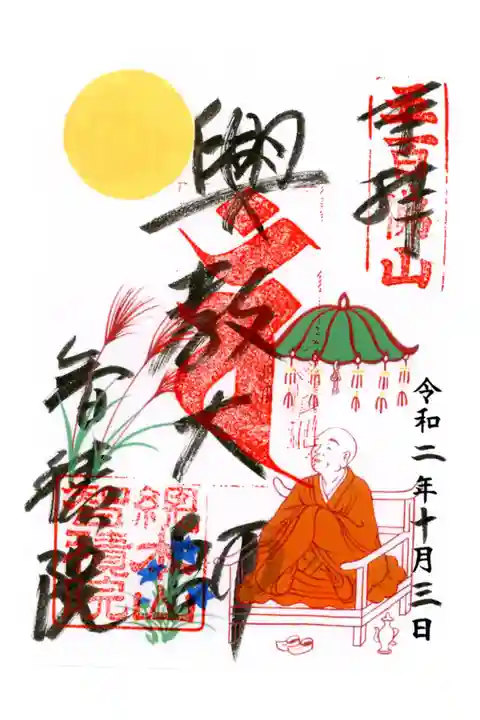 奉拝
五百佛山
令和二年十月三日
興教大師
智積院